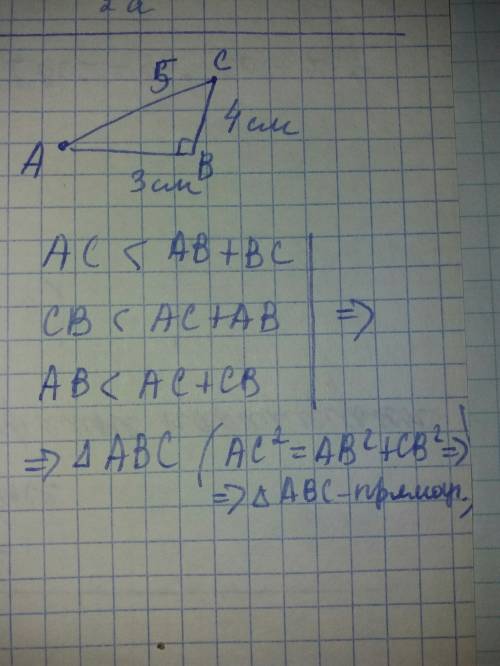 2a
5
C
4 см
A
B
3 см
AC < AB+BC
CB < AC+AB
=>
AB < AC+CB
=> △ ABC (AC² = AB²+CB² =>
=> △ ABC - прямоуг.)